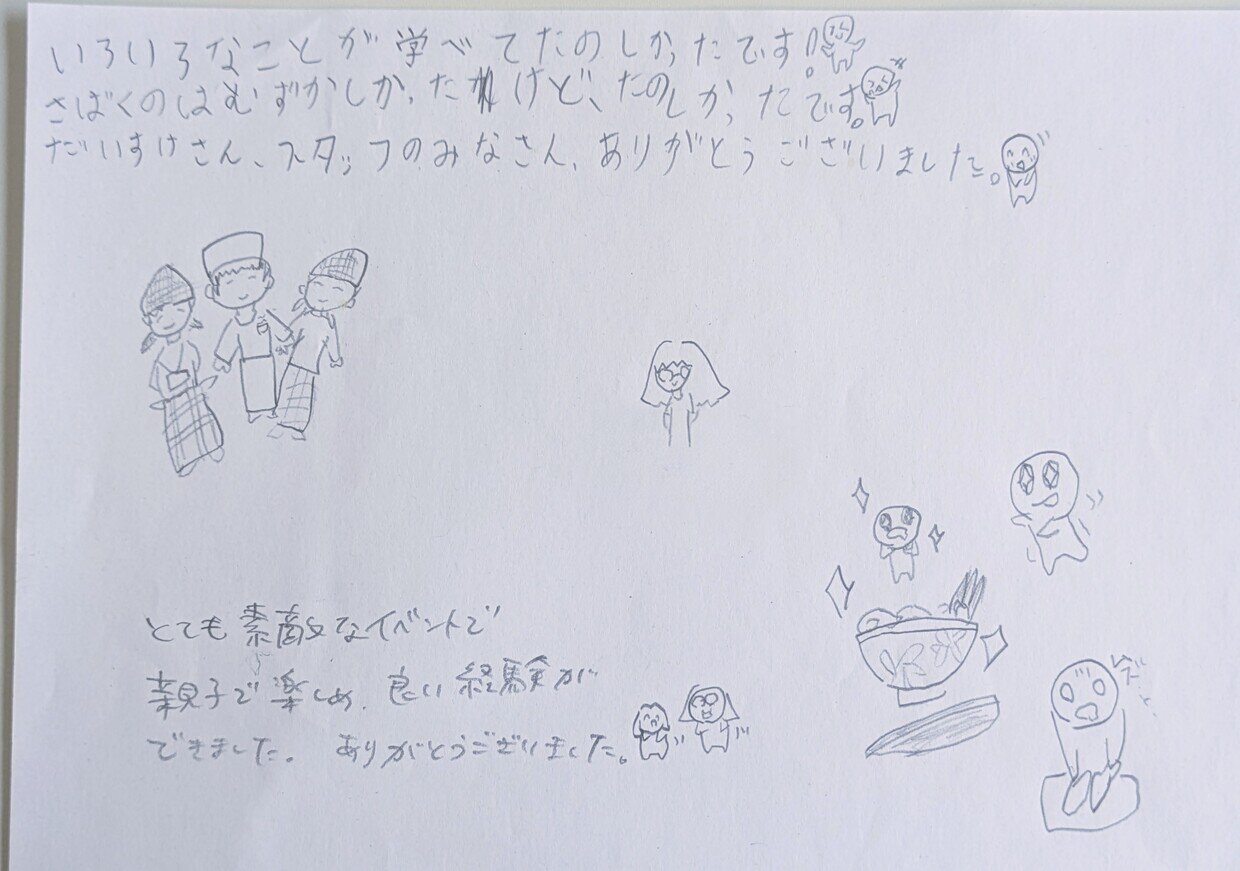 いろいろなことが学べてたのしかったです!
さばくのはむずかしかったけど、たのしかったです。
だいすけさん、スタッフのみなさん、ありがとうございました。
とても素敵なイベントで
親子で楽しめ、良い経験が
できました。ありがとうございました。